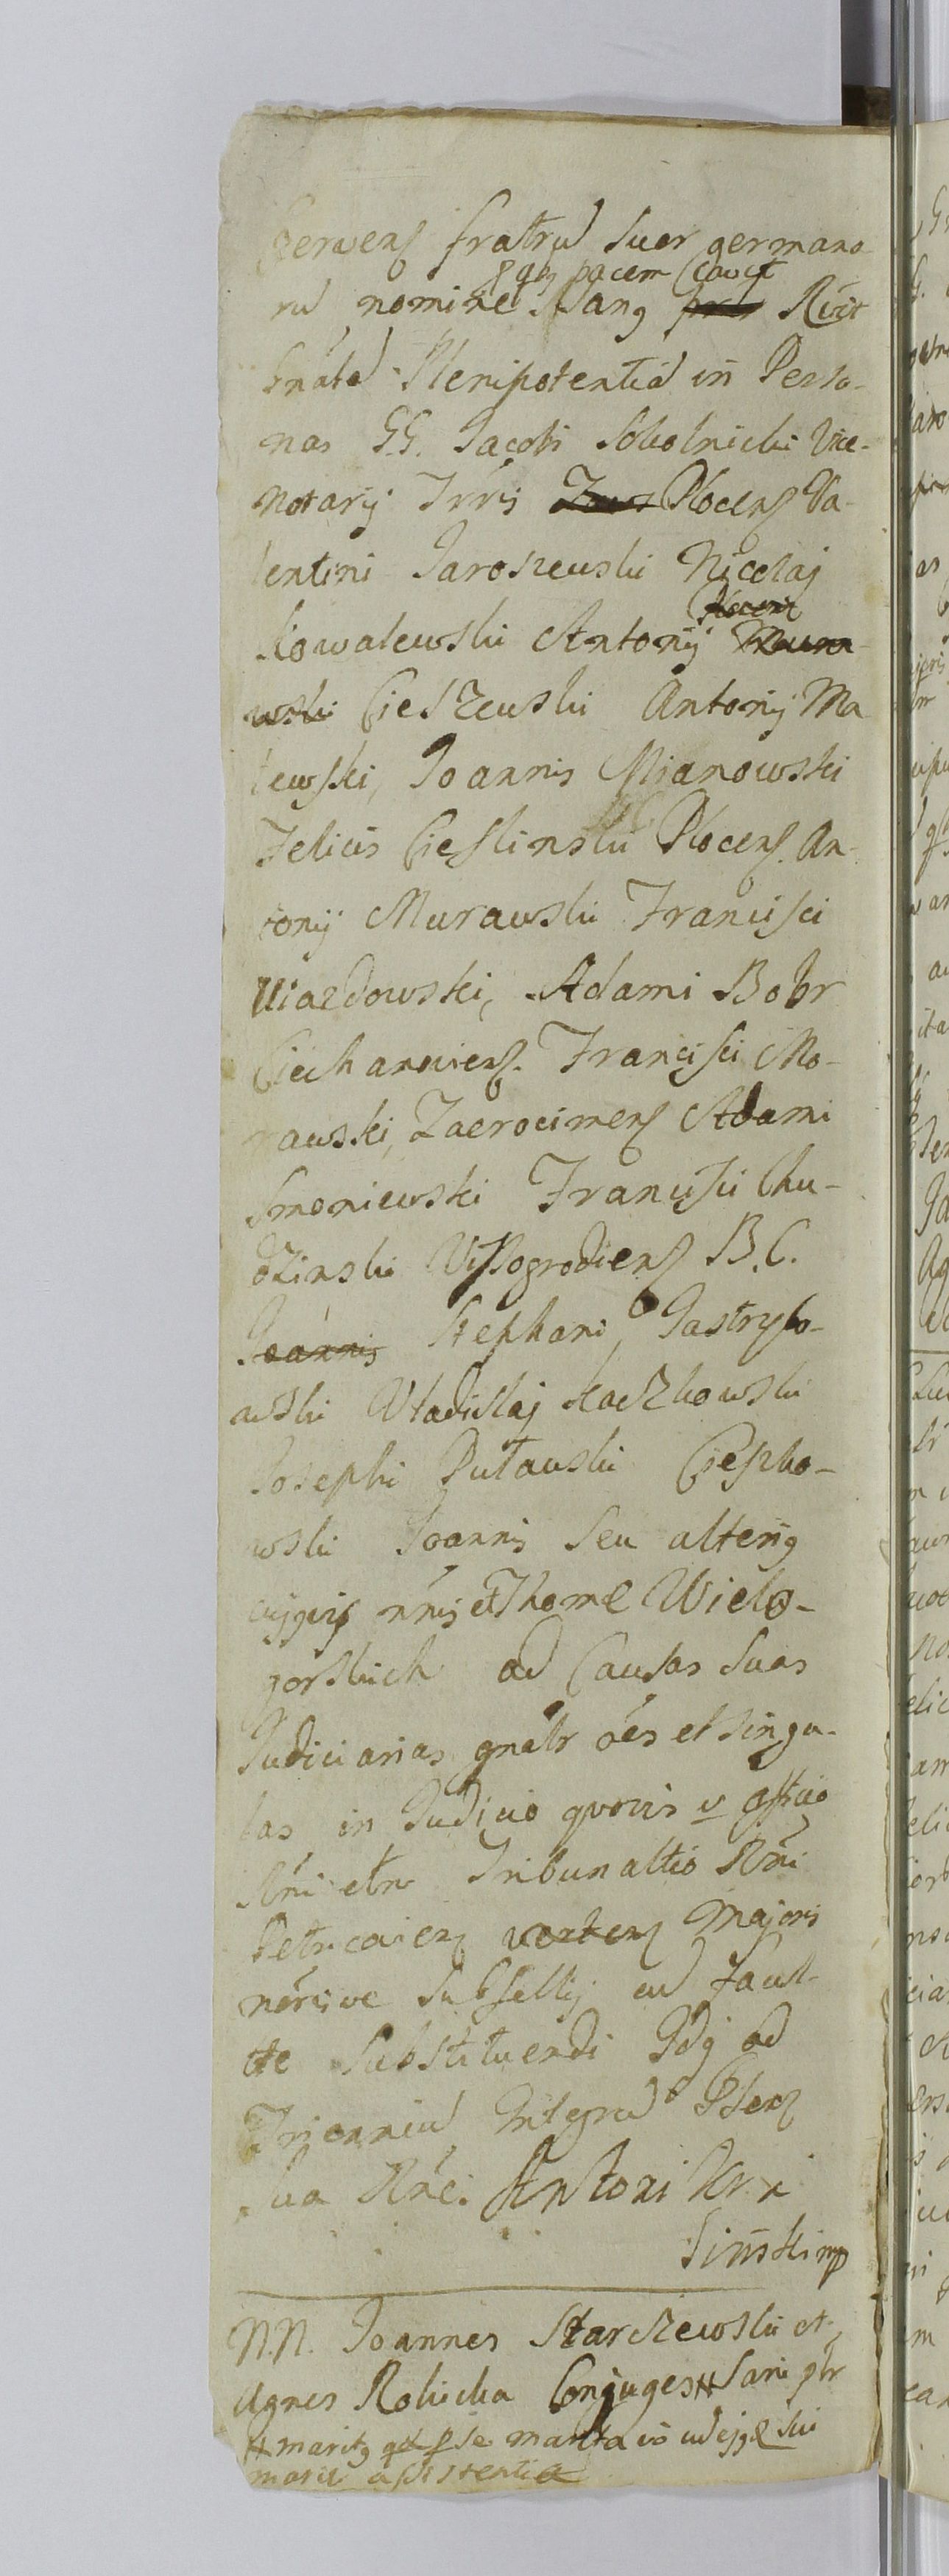 serviens fratrũ suor germano-
pro quo pacem cavet
rũ nomine. Sang Rcũt
Plenipotentiã in Perso-
nas GG. Jacobi Sokolnicki Vice-
notarij Trris Plocens Va-
lentini Jaroszewski Nicolaj
Kowalewski Antonij
Cieszewski Antonij Ma-
lewski, Joannis Mianowski
Felicis Cieslinski Plocens. An-
tonij Murawski Francisci
Uiazdowski, Adami Bobr
Ciechanoviens. Francisci Mo-
rawski, Zacrocimens Adami
Smoniewski Francisci Chu-
dzinski Vissogrodiens B.C.
Joannis Stephani Jastrzbo-
wski Vladislaj Kaczkowski
Josephi Putawski Ciesko-
wski Joannis seu alterig
cujgvis nm̃is et Thomæ Wielo-
gorskich ad Causas suas
Judiciarias gnãlr oẽs et singu-
las in Judicio quovis v officio
Rñi etñr Tribunaltio Rñi
Petricoviens vertens Majoris
norisve Subsellij cũ facul-
tte substituendi Idg ad
Trienniũ Integrũ Psens
sua Rñe. Antoni Krzi
siński mp
N.N. Joannes Starczewski et
Agnes Rokicka Conjuges # Sani ptr
# maritg qd p se marita vo cũ ejgd sui
mariti assistentia